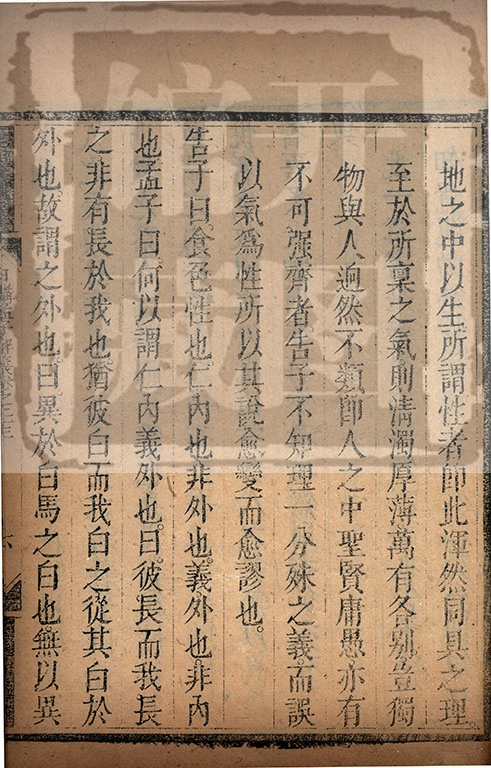 地之中以生所謂性者即此渾然同具之理。
至於所稟之氣則清濁厚薄萬有各別豈獨
物與人逈然不類即人之中聖賢庸愚亦有
不可强齊者告子不知理一分殊之義而誤
以氣爲性所以其說愈變而愈謬也。
告子曰。食色性也仁內也非外也。義外也非內
也孟子曰何以謂仁內義外也。曰。彼長而我長
之非有長於我也猶彼白而我白之從其白於
外也故謂之外也曰異於白馬之白也無以異